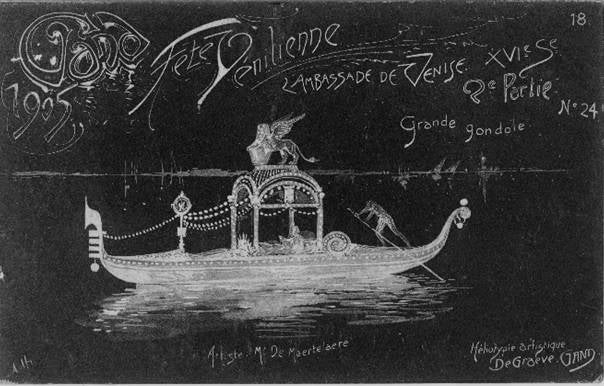 18.
Gand
1905
Fête Vénitienne
L'AMBASSADE DE VENISE. XVIe Se
2e Partie
No 24
Grande gondole.
Artiste. Mr De Maertelaere
Héliotypie artistique
De Graeve. GAND.